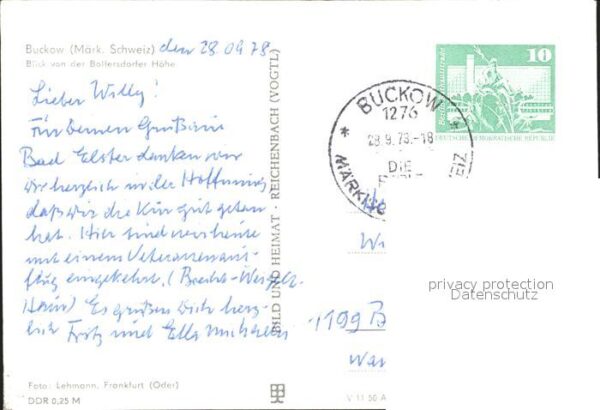 Buckow (Märk. Schweiz) den 28.09.78
Blick von der Bollersdorfer Höhe
Lieber Willy!
Für Deinen Gruß aus
Bad Elster danken wir
Dir herzlich in der Hoffnung
daß wir die Kur gut getan
hat. Hier sind wir heute
mit einem Veteranenaus-
flug eingekehrt. (Brecht-Weigel-
Haus) Es grüßen Dich herz-
lich Fritz und Ella
Foto: Lehmann, Frankfurt (Oder)
DDR 0,25 M
BILD UND HEIMAT · REICHENBACH (VOGTL)
V 11 50 A
10
DEUTSCHE DEMOKRATISCHE REPUBLIK
BUCKOW
1276
28.9.78-18
DIE
MÄRKISC
EIZ
1199 B
privacy protection
Datenschutz